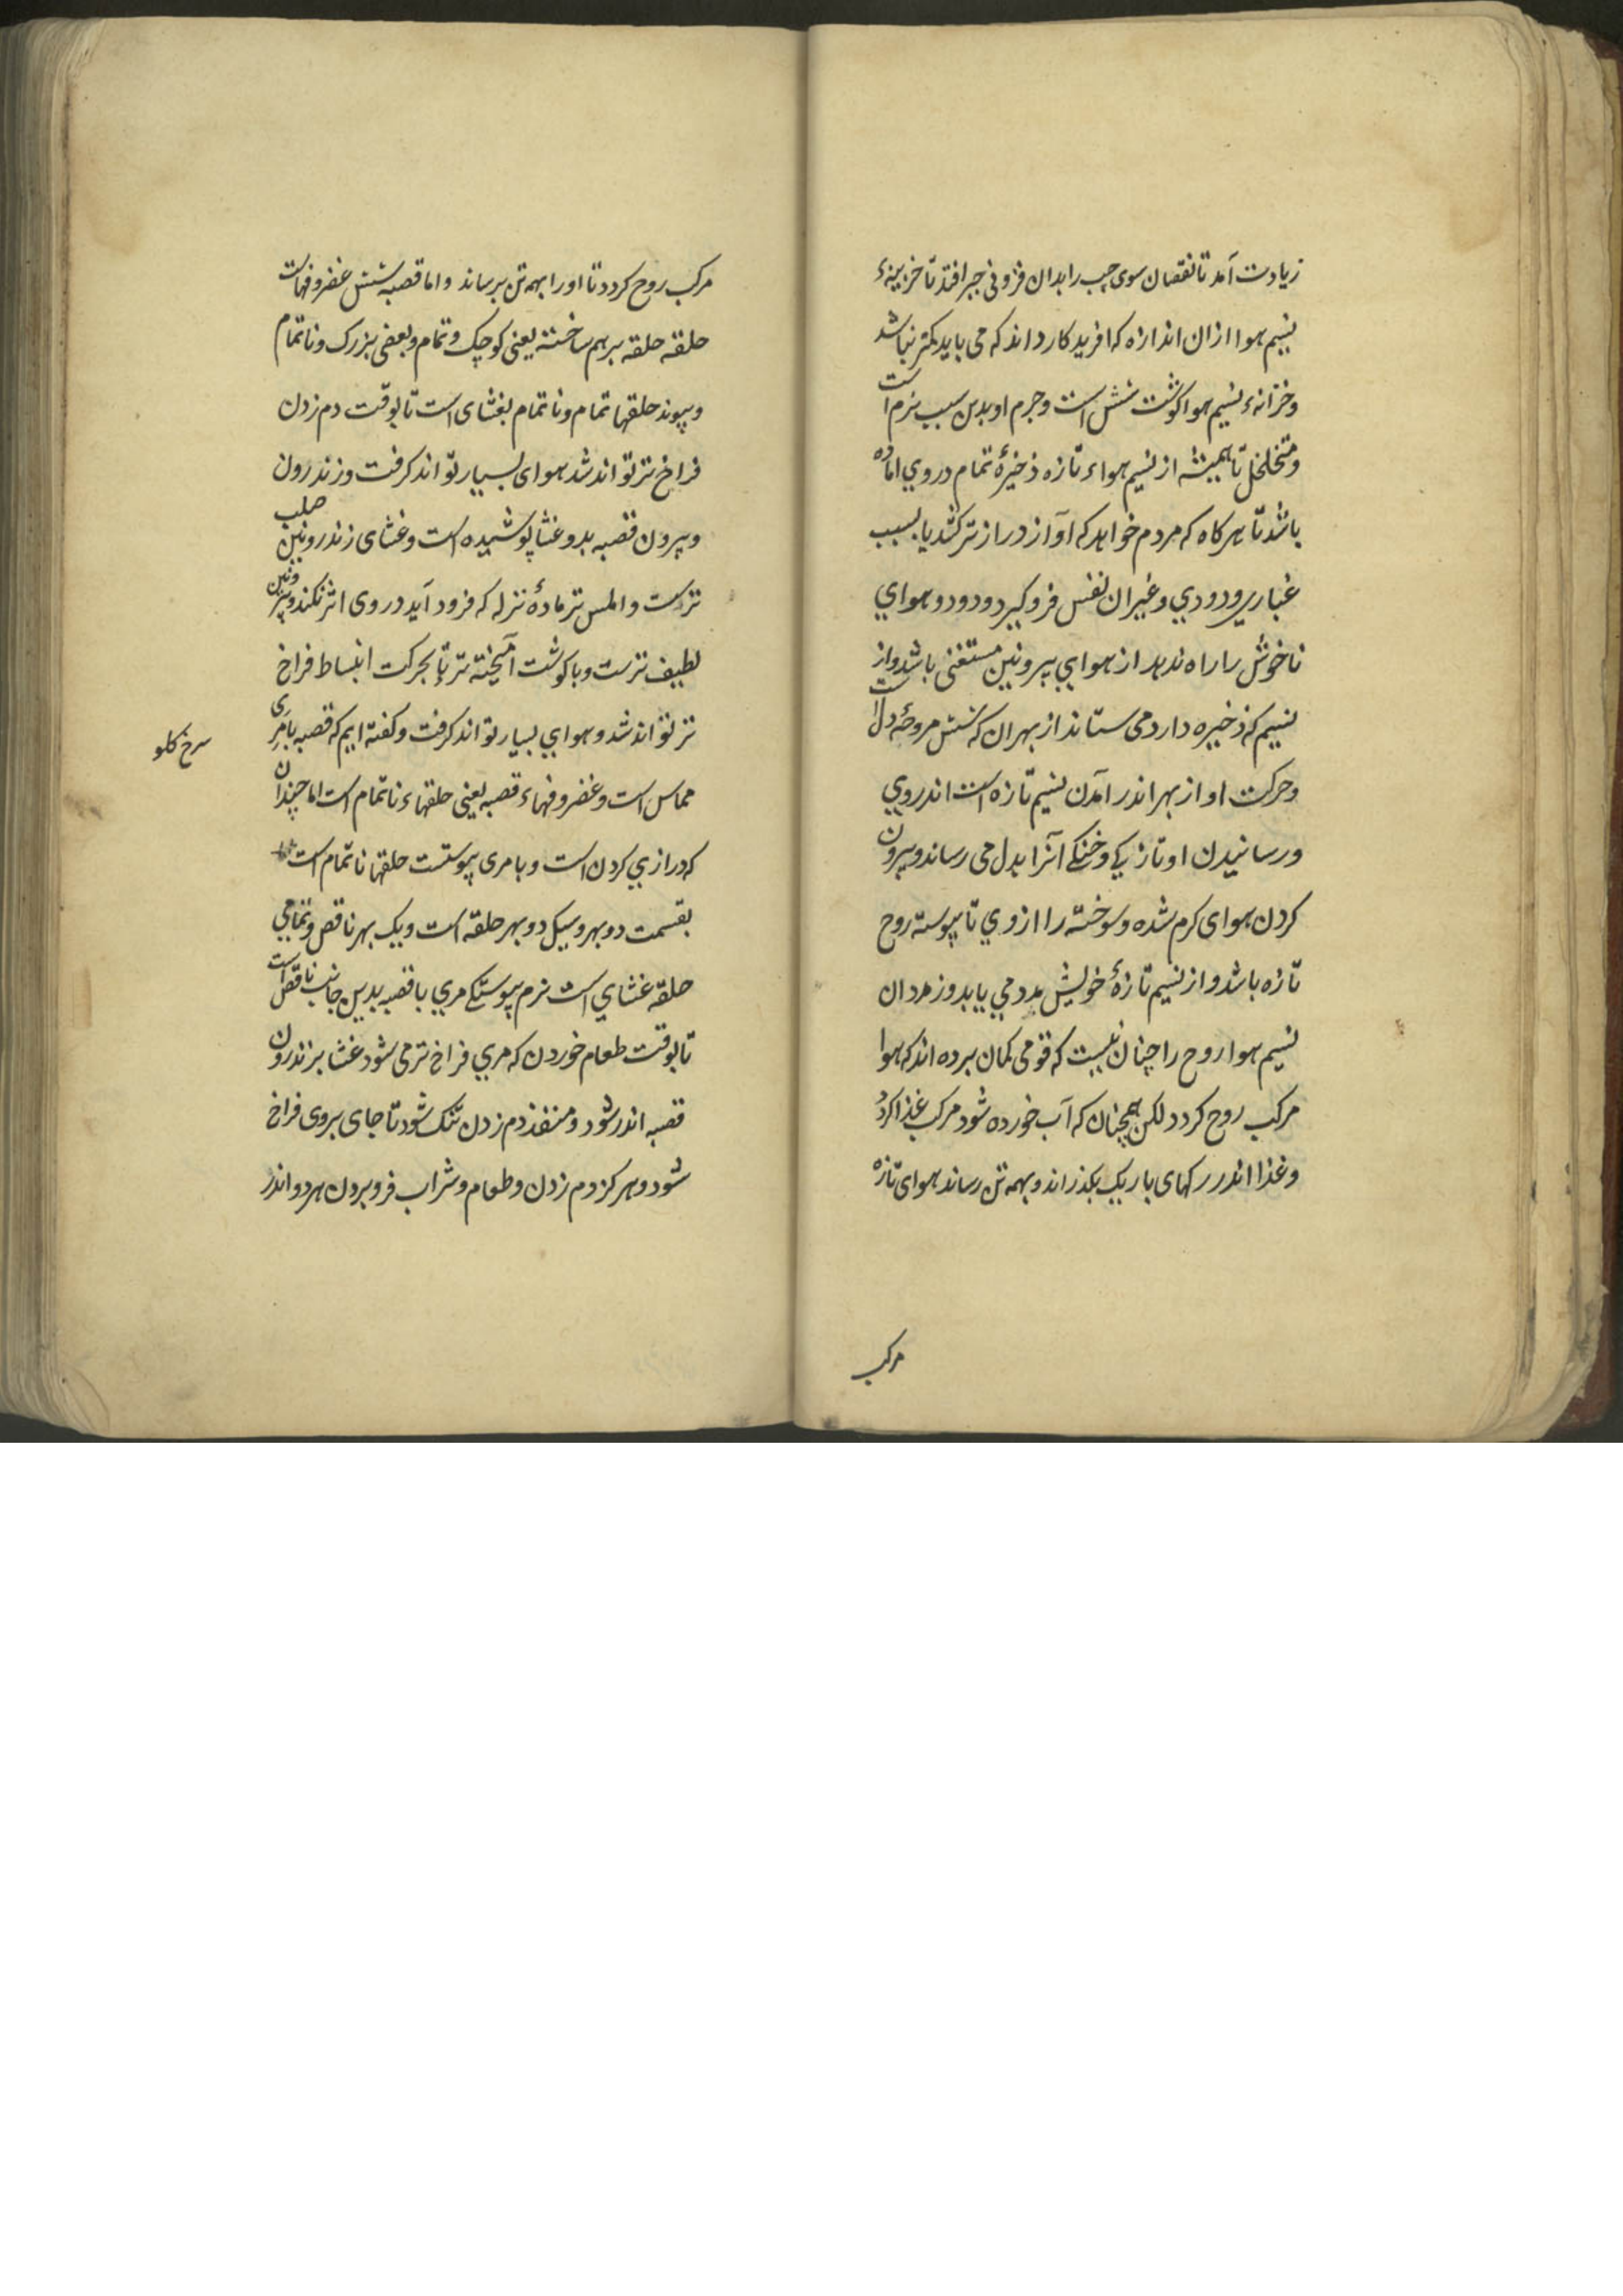 زیادت آمد تا نقصان سوی چپ را بدان فزونی جبر افتد تا خزینهٔ
نسیم هوا ازان اندازه که افریدکار داند که می باید کمتر نباشد
وخزانهٔ نسیم هوا کوشت شش است وجرم او بدین سبب نرم است
ومتخلخل تا همیشه از نسیم هواء تازه ذخیرهٔ تمام در وي اماده
باشد تا هرکاه که مردم خواهد که آواز دراز تر کشد یا بسبب
غباري ودودي وغیر ان نفس فروکیرد ودود وهواي
ناخوش را راه ندهد از هوایي بیرونین مستغنی باشد واز
نسیم که ذخیره دارد می ستاند از بهر ان که شش مروحهٔ دل است
وحرکت او از بهر اندر آمدن نسیم تازه است اندر وي
ورسانیدن او تازیکي وخنکي آنرا بدل می رساند وبیرون
کردن هوای کرم شده وسوخته را از وي تا پیوسته روح
تازه باشد واز نسیم تازهٔ خویش مدد می یابد وز مدد ان
نسیم هوا روح را چنان نیست که قومی کمان برده اند که هوا
مرکب روح کردد لکن همچنان که آب خورده شود مرکب غذا کردد
وغذا اندر رکهای باریک بکذراند وبهمه تن رساند هوای تازه
مرکب
مرکب روح کردد تا او را بهمه تن برساند واما قصبه شش غضروفهاست
حلقه حلقه برهم ساخته یعنی کوچک وتمام وبعضی بزرک وناتمام
وپیوند حلقها تمام وناتمام بغشای است تا بوقت دم زدن
فراخ تر تواند شد هوای بسیار تواند کرفت وزندرون
وبیرون قصبه بدو غشا پوشیده است وغشای زندرونین صلب
ترست واملس تر مادهٔ نزله که فرود آید در وی اثر نکند وبیرونین
لطیف ترست وباکوشت آمیخته تر تا بحرکت انبساط فراخ
تر تواند شد وهواي بسیار تواند کرفت وکفته ایم که قصبه بامری
سرخ کلو
مماس است وغضروفهاء قصبه یعنی حلقهاء ناتمام است اما چندان
که درازي کردن است وبا مری پیوستست حلقها ناتمام است
بقسمت دو بهر وسیکل دو بهر حلقه است ویک بهر ناقص وتمامي
حلقه غشاي است نرم پیوستکي مري با قصبه بدین جانب ناقص است
تا بوقت طعام خوردن که مري فراخ تر می شود غشا بر زندرون
قصبه اندر شود ومنفذ دم زدن تنک شود تا جای بروی فراخ
شود وهرکز دم زدن وطعام وشراب فرو بردن هر دو اندر